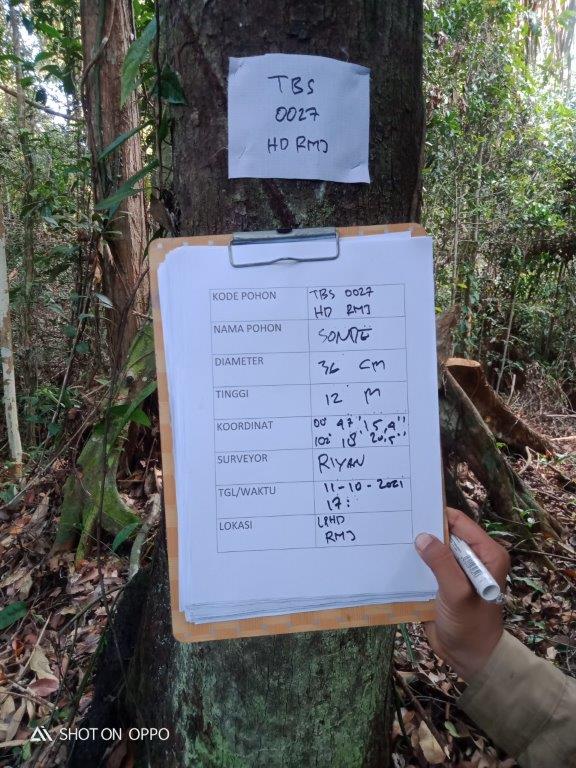 TBS
0027
HD RMJ
KODE POHON
TBS 0027
HD RMJ
NAMA POHON
SONDE
DIAMETER
36 CM
TINGGI
12 M
KOORDINAT
00° 47' 15,9"
102° 18' 20,5"
SURVEYOR
RIYAN
TGL/WAKTU
11-10-2021
17:
LOKASI
LPHD
RMJ
SHOT ON OPPO